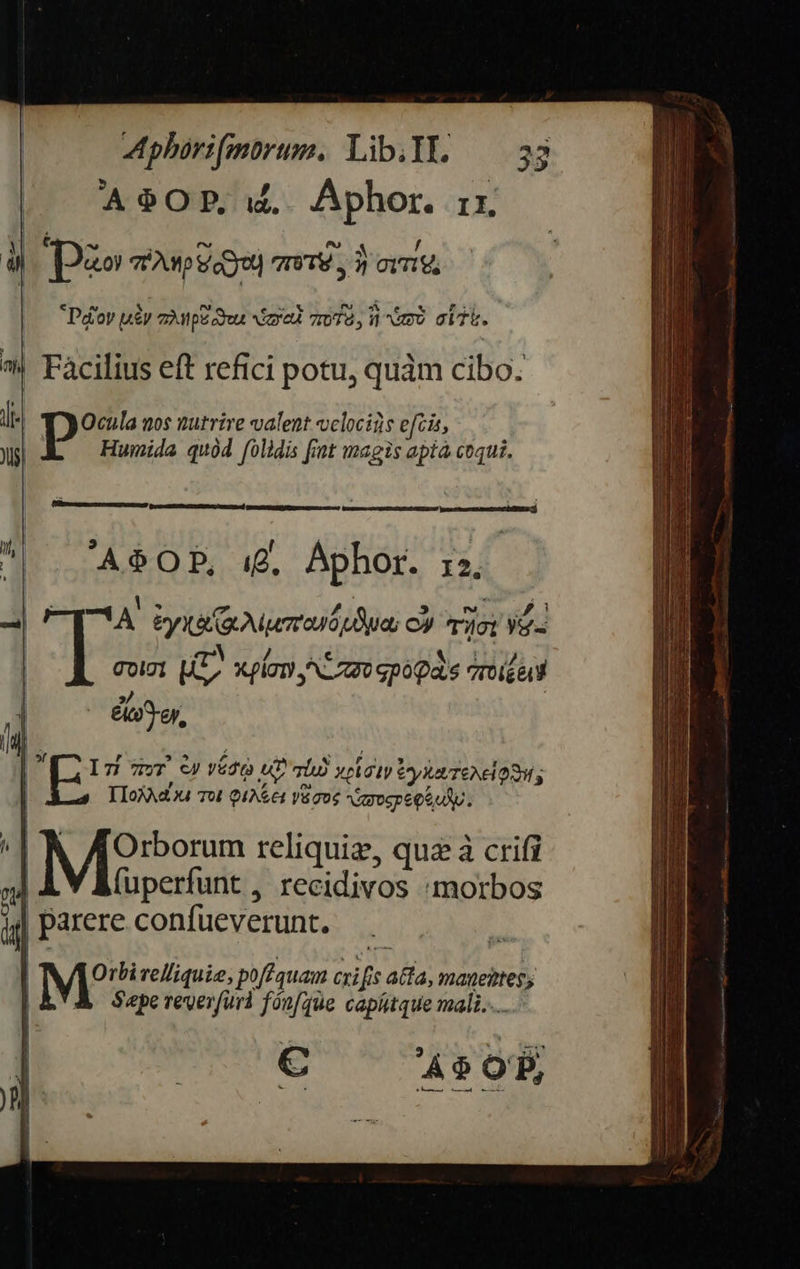 Aphoriſmorum. Lib. II. 33
ἈΦΟΡ. ιά. Aphor. 11.
Ρᾷον πληροῦσθαι ποτοῦ, ἢ σιτίου.
Ῥᾷον μὲν πληροῦσθαι ὑπαὶ ποτοῦ, ἢ ὑπὸ σίτου.
Facilius eſt refici potu, quàm cibo.
POcula nos nutrire valent velociùs eſcis,
Humida quòd ſolidis ſint magis apta coqui.
ἈΦΟΡ. ιβ΄. Aphor. 12.
ΤΑ ἐγκαταλιμπανόμενα ἐν τῇσι νού-
σοισι μετὰ κρίσιν, ὑποστροφὰς ποιέειν
εἴωθεν.
ΕΙ τί ποτ' ἐν νούσῳ μετὰ τὴν κρίσιν ἐγκατελείφθη,
Πολλάκι τοι φιλέει νοῦσος ὑποστρεφέμεν.
MOrborum reliquiæ, quæ à criſi
ſuperſunt, recidivos morbos
parere conſueverunt.
MOrbi relliquiæ, poſtquam criſis acta, manentes,
Sæpe reverſuri fónſque capútque mali.
C ἈΦΟΡ.